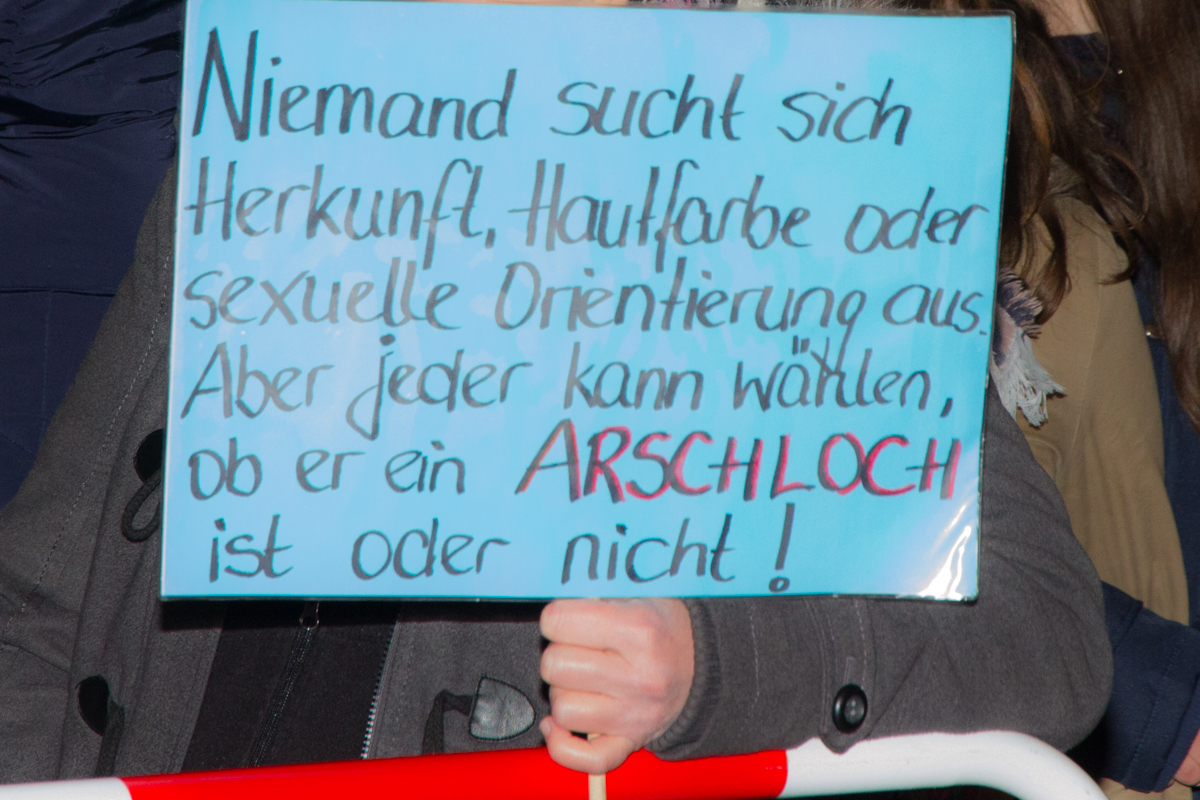 Niemand sucht sich
Herkunft, Hautfarbe oder
sexuelle Orientierung aus.
Aber jeder kann wählen,
ob er ein ARSCHLOCH
ist oder nicht!